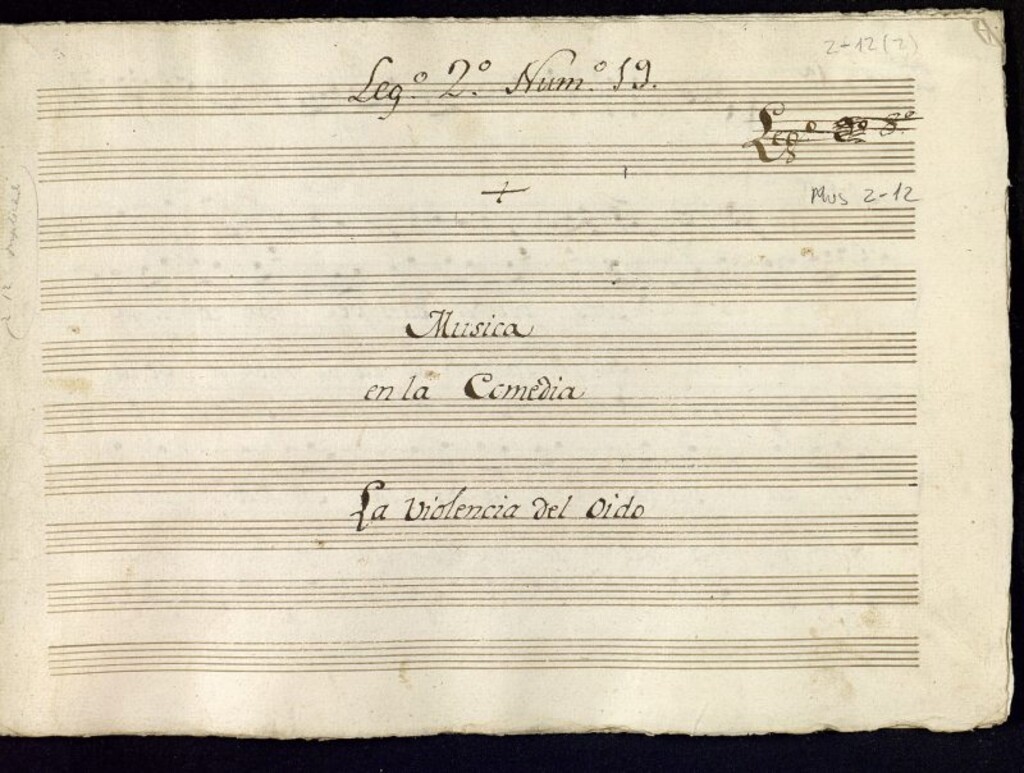 2-12(2)
Leg.º 2.º Num.º 19.
Leg.º 8.º
+
Mus 2-12
Musica
en la Comedia
La Violencia del Oido